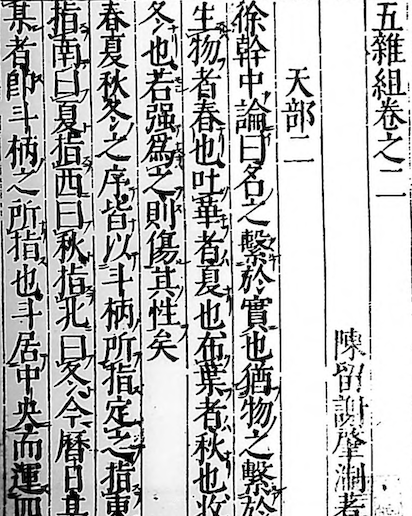 五雜組卷之二
陳留謝肇淛著
天部二
徐幹中論曰名之繫於實也猶物之繫於
生物者春也吐華者夏也布葉者秋也收
冬也若强爲之則傷其性矣
春夏秋冬之序皆以斗柄所指定之指東
指南曰夏指西曰秋指北曰冬今曆日某
某者帥斗柄之所指也斗居中央而運四